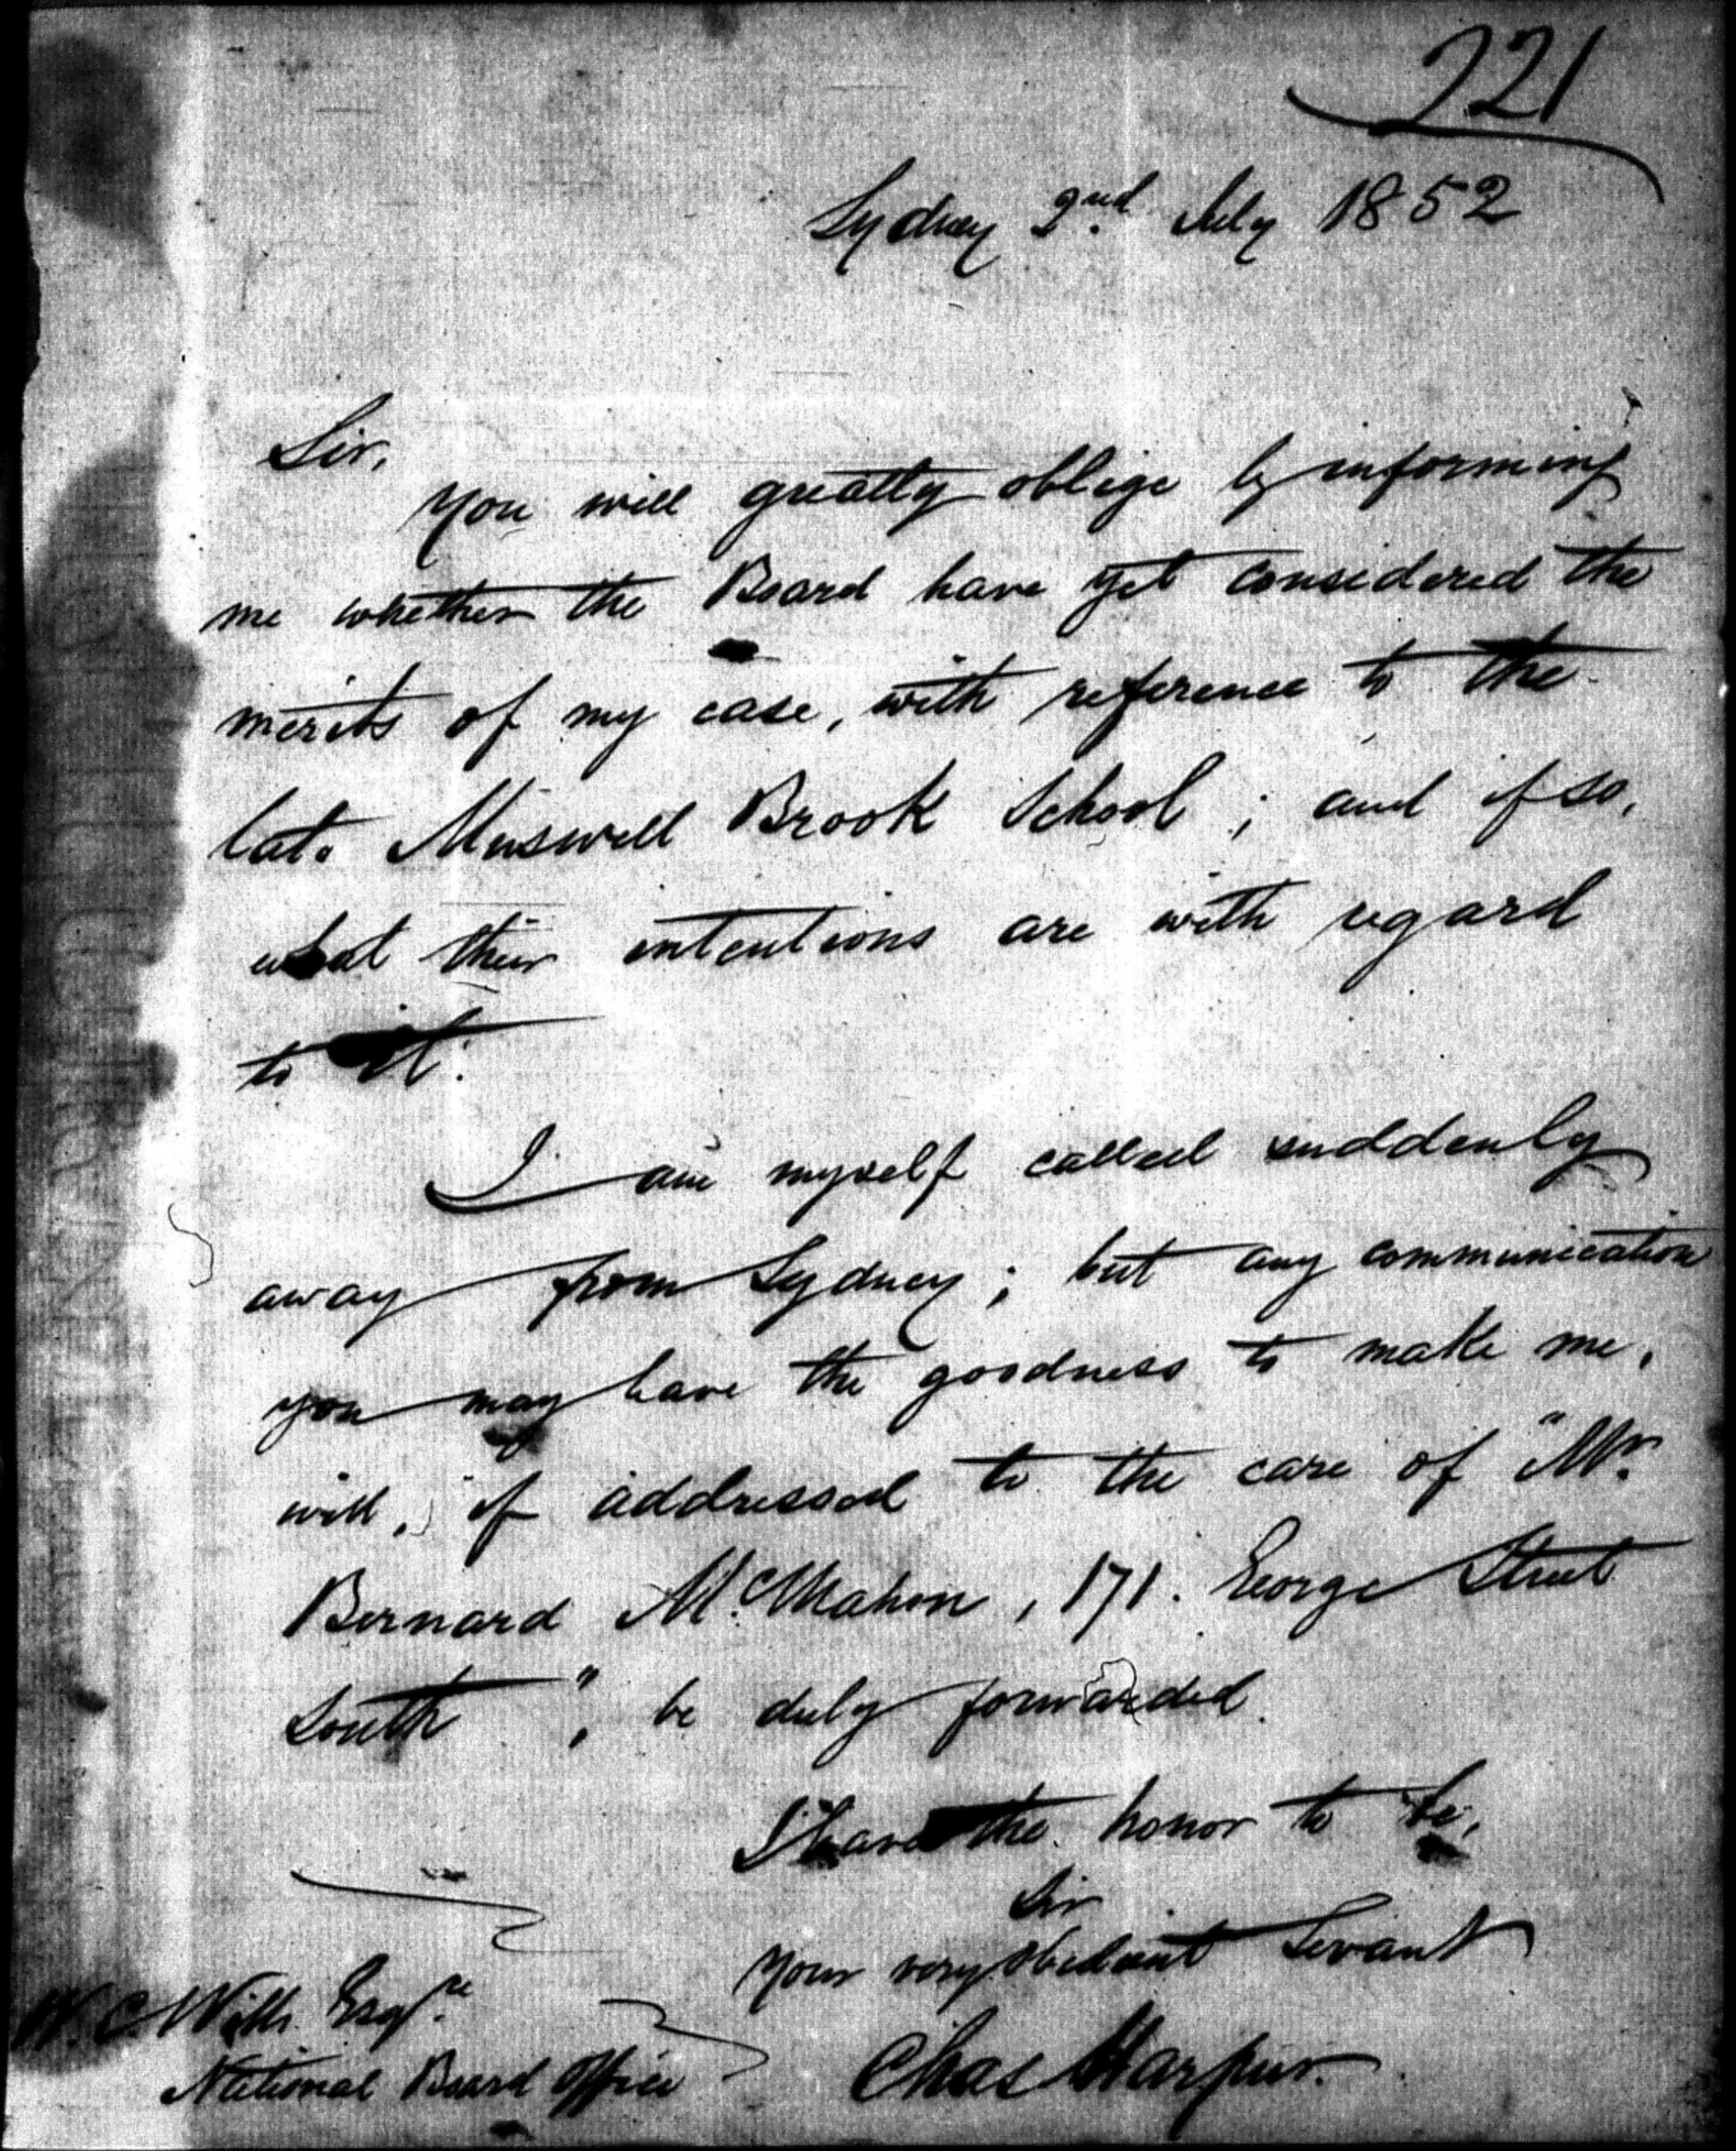 221
Sydney 2nd. July 1852
Sir,
You will greatly oblige by informing
me whether the Board have yet considered the
merits of my case, with reference to the
late Muswell Brook School ; and if so,
what their intentions are with regard
to it.
I am myself called suddenly
away from Sydney ; but any communication
you may have the goodness to make me,
will, if addressed to the care of "Mr.
Bernard McMahon, 171. George Street
South", be duly forwarded.
I have the honor to be,
Sir
Your very obedient Servant
Chas Harpur.
W. C. Wills Esqre.
National Board Office